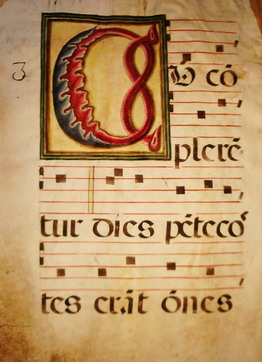 3
CŪ cō
plerē
tur dies pētecos
tes erāt ōnes